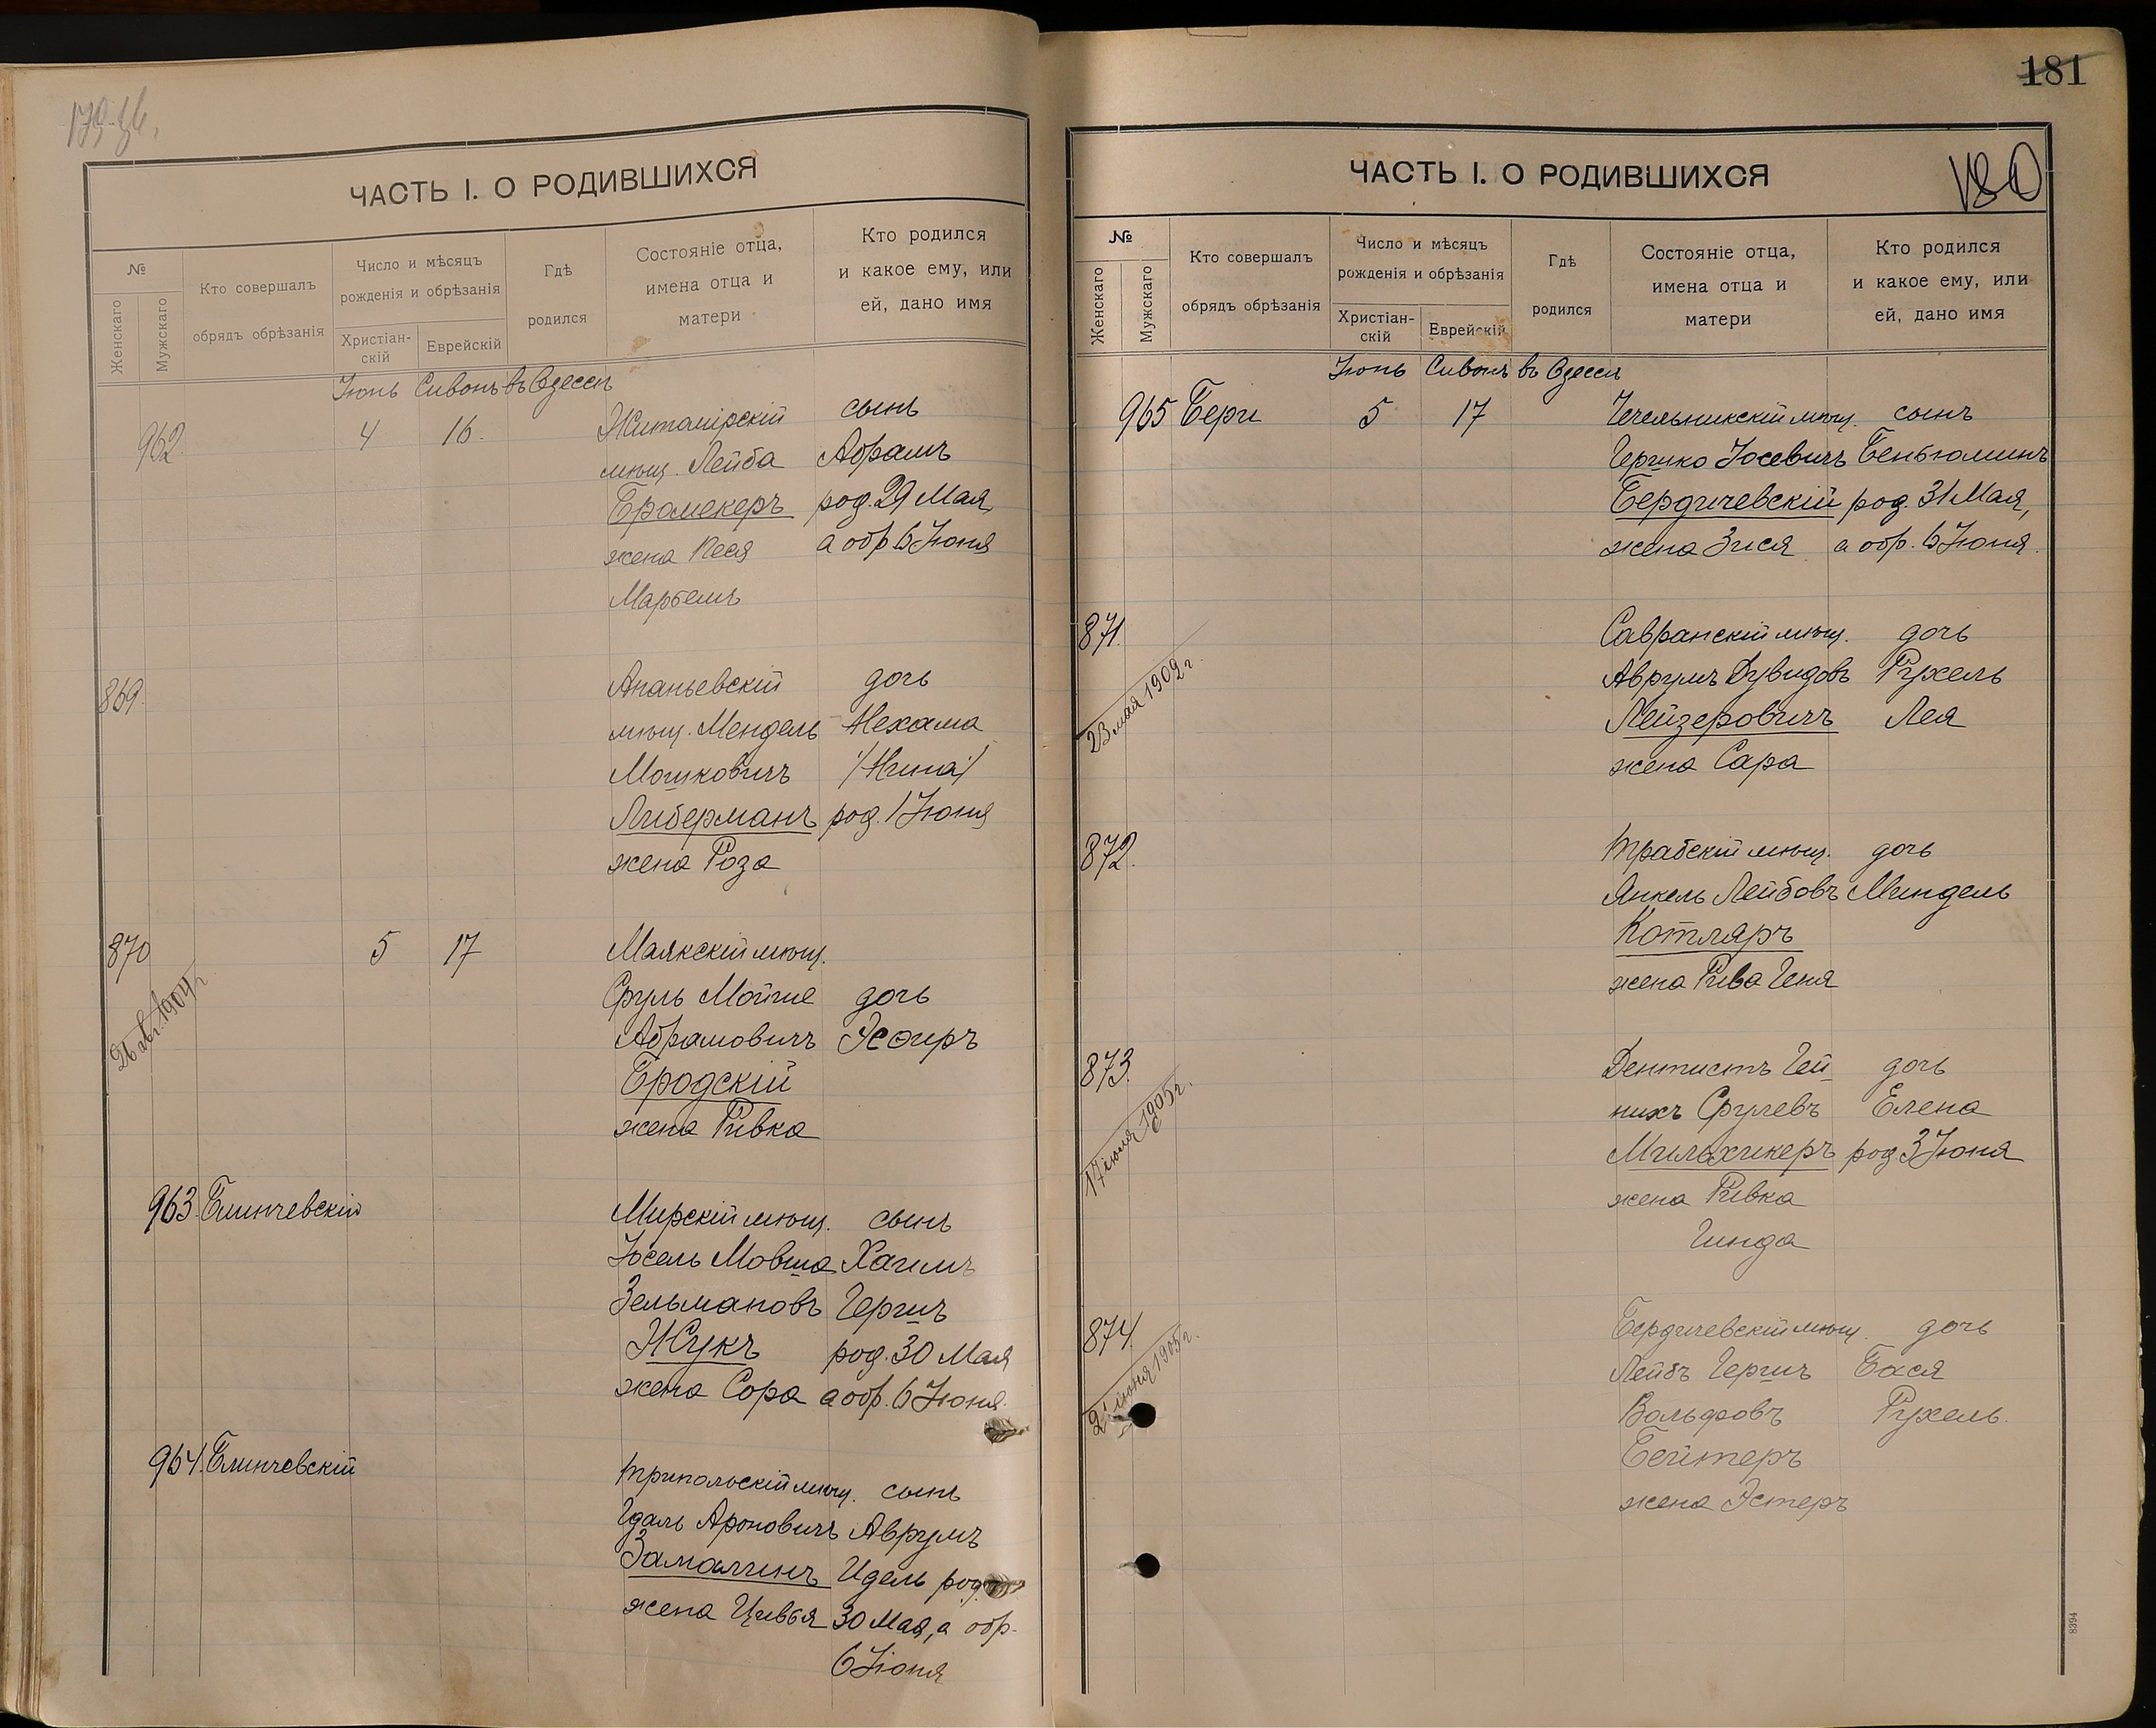 ЧАСТЬ I. О РОДИВШИХСЯ
№
Женскаго
Мужскаго
Кто совершалъ
обрядъ обрѣзанія
Число и мѣсяцъ
рожденія и обрѣзанія
Христіан-
скій
Еврейскій
Гдѣ
родился
Состояніе отца,
имена отца и
матери
Кто родился
и какое ему, или
ей, дано имя
Іюнь Сивонъ въ Одессѣ
962. 4 16. Житомірскій сынъ
мѣщ. Лейба Абрамъ
род. 29 Мая,
жена Песя а обр 6 Іюня
869. Ананьевскій дочь
мѣщ. Мендель Нехама
Мошковичъ /Нина/
Либерманъ род. 1 Іюня
жена Роза
870 5 17 Маякскій мѣщ.
26 авг. 1904 г
Сруль Мойше дочь
Абрамовичъ Эсѳиръ
Бродскій
жена Ривка
963. Блинчевскій Мирскій мѣщ. сынъ
Іосель Мовша Хаимъ
Зельмановъ Гершъ
Жукъ род. 30 Мая
жена Сора а обр. 6 Іюня.
964. Блинчевскій Трипольскій мѣщ. сынъ
Гдаль Ароновичъ Аврумъ
Идель род.
жена Цивья 30 Мая, а обр.
6 Іюня
181
180
ЧАСТЬ I. О РОДИВШИХСЯ
№
Женскаго
Мужскаго
Кто совершалъ
обрядъ обрѣзанія
Число и мѣсяцъ
рожденія и обрѣзанія
Христіан-
скій
Еврейскій
Гдѣ
родился
Состояніе отца,
имена отца и
матери
Кто родился
и какое ему, или
ей, дано имя
Іюнь Сивонъ въ Одессѣ
965 Бери 5 17 Чечельникскій мѣщ. сынъ
Гершко Іосевичъ Беньюминъ
Бердичевскій род. 31 Мая,
жена Зися а обр. 6 Іюня.
871. Савранскій мѣщ. дочь
23 мая 1902 г.
Аврумъ Дувидовъ Рухель
Лейзеровичъ Лея
жена Сара
872. Трабскій мѣщ. дочь
Янкель Лейбовъ Миндель
Котляръ
жена Рива Геня
873. Дентистъ Гей- дочь
17 іюня 1905 г.
нихъ Срулевъ Елена
Мильхикеръ род. 3 Іюня
жена Ривка
Гинда
874. Бердичевскій мѣщ. дочь
1905 г.
Лейбъ Гершъ Бася
Вольфовъ Рухель.
Бейтеръ
жена Эстеръ
8394